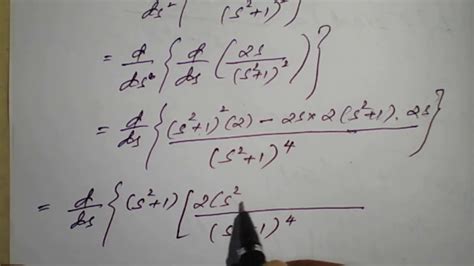 d/ds² { (s²+1)² }
= d/ds { d/ds ( 2s / (s²+1)² ) }
= d/ds { ( (s²+1)² (2) − 2s × 2 (s²+1) . 2s ) / (s²+1)⁴ }
= d/ds { (s²+1) [ 2(s² / (s²+1)⁴